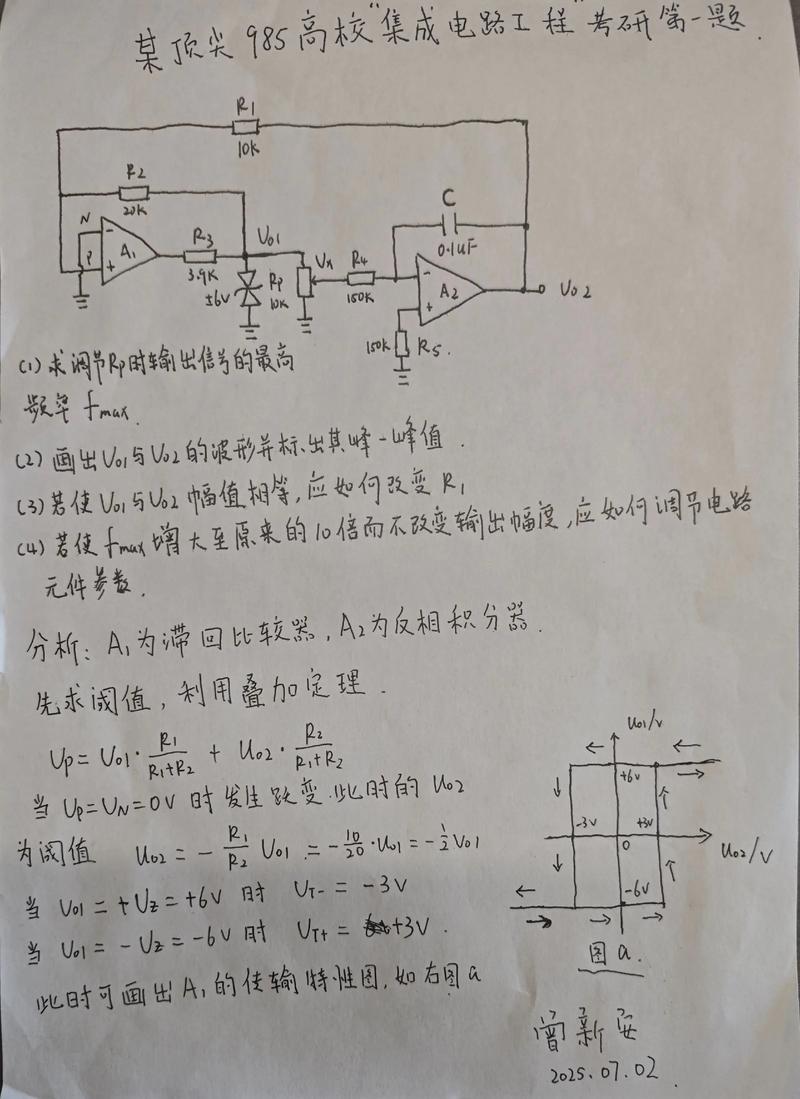 某顶尖985高校“集成电路工程”考研第一题.
R1
10K
R2
20K
N
P
-
+
A1
R3
3.9K
Uo1
±6V
Rp
10K
Ux
R4
150K
C
0.1uF
-
+
A2
Uo2
150K
R5.
(1) 求调节Rp时输出信号的最高
频率 fmax.
(2) 画出Uo1与Uo2的波形并标出其峰-峰值.
(3) 若使Uo1与Uo2幅值相等,应如何改变R1
(4) 若使fmax增大至原来的10倍而不改变输出幅度,应如何调节电路
元件参数.
分析: A1为滞回比较器, A2为反相积分器.
先求阈值, 利用叠加定理.
Up = Uo1 · R1/(R1+R2) + Uo2 · R2/(R1+R2)
当 Up=UN=0V 时发生跃变.此时的Uo2
为阈值 Uo2 = - R1/R2 Uo1 = - 10/20 · Uo1 = - 1/2 Uo1
当 Uo1 = +Uz = +6V 时 UT- = -3V
当 Uo1 = -Uz = -6V 时 UT+ = +3V.
此时可画出A1的传输特性图,如右图a
Uo1/V
+6V
-3V
+3V
0
Uo2/V
-6V
图a.
曾新安
2025.07.02.